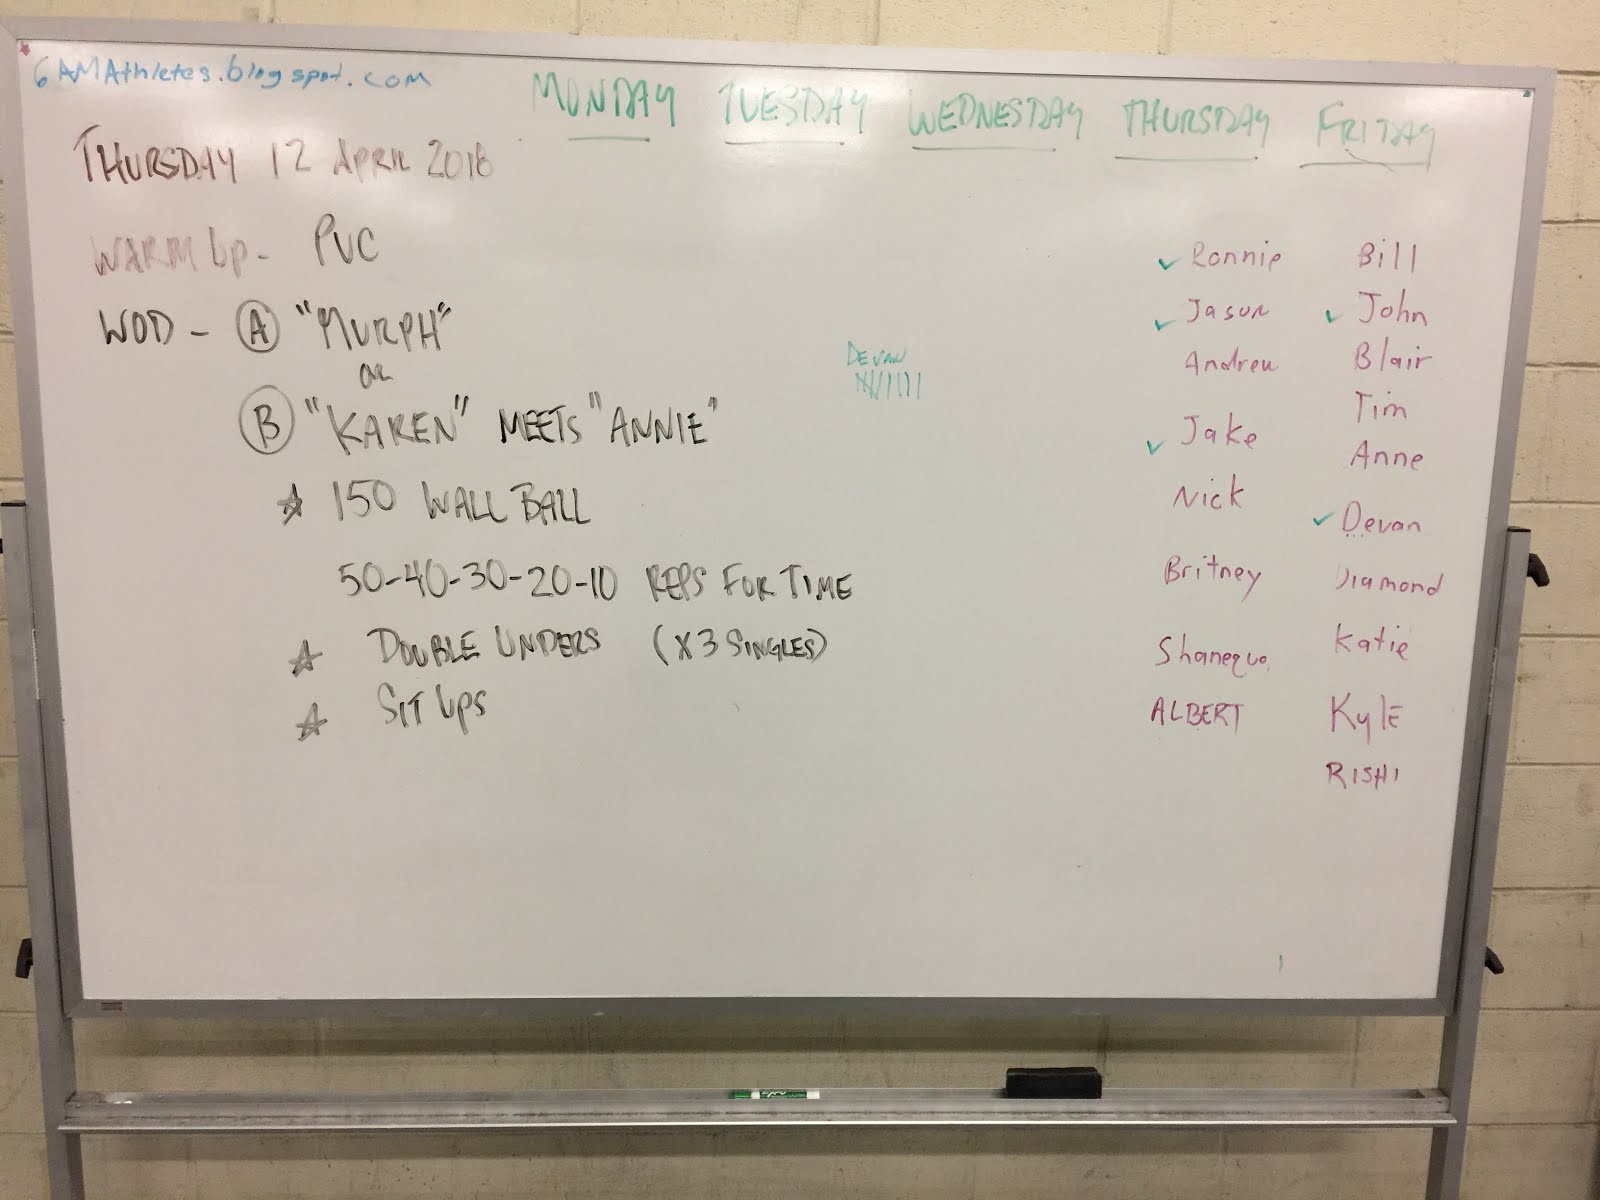 6AMAthletes.blogspot.com
MONDAY TUESDAY WEDNESDAY THURSDAY FRIDAY
THURSDAY 12 APRIL 2018
WARM Up - PVC
WOD - A "MURPH"
OR
B "KAREN" MEETS "ANNIE"
☆ 150 WALL BALL
50-40-30-20-10 REPS FOR TIME
☆ DOUBLE UNDERS (X 3 SINGLES)
☆ SIT UPS
DEVAN
✓ Ronnie
✓ Jason
Andrew
✓ Jake
Nick
Britney
Shanequa
ALBERT
Bill
✓ John
Blair
Tim
Anne
✓ Devan
Diamond
Katie
KylE
RISHI